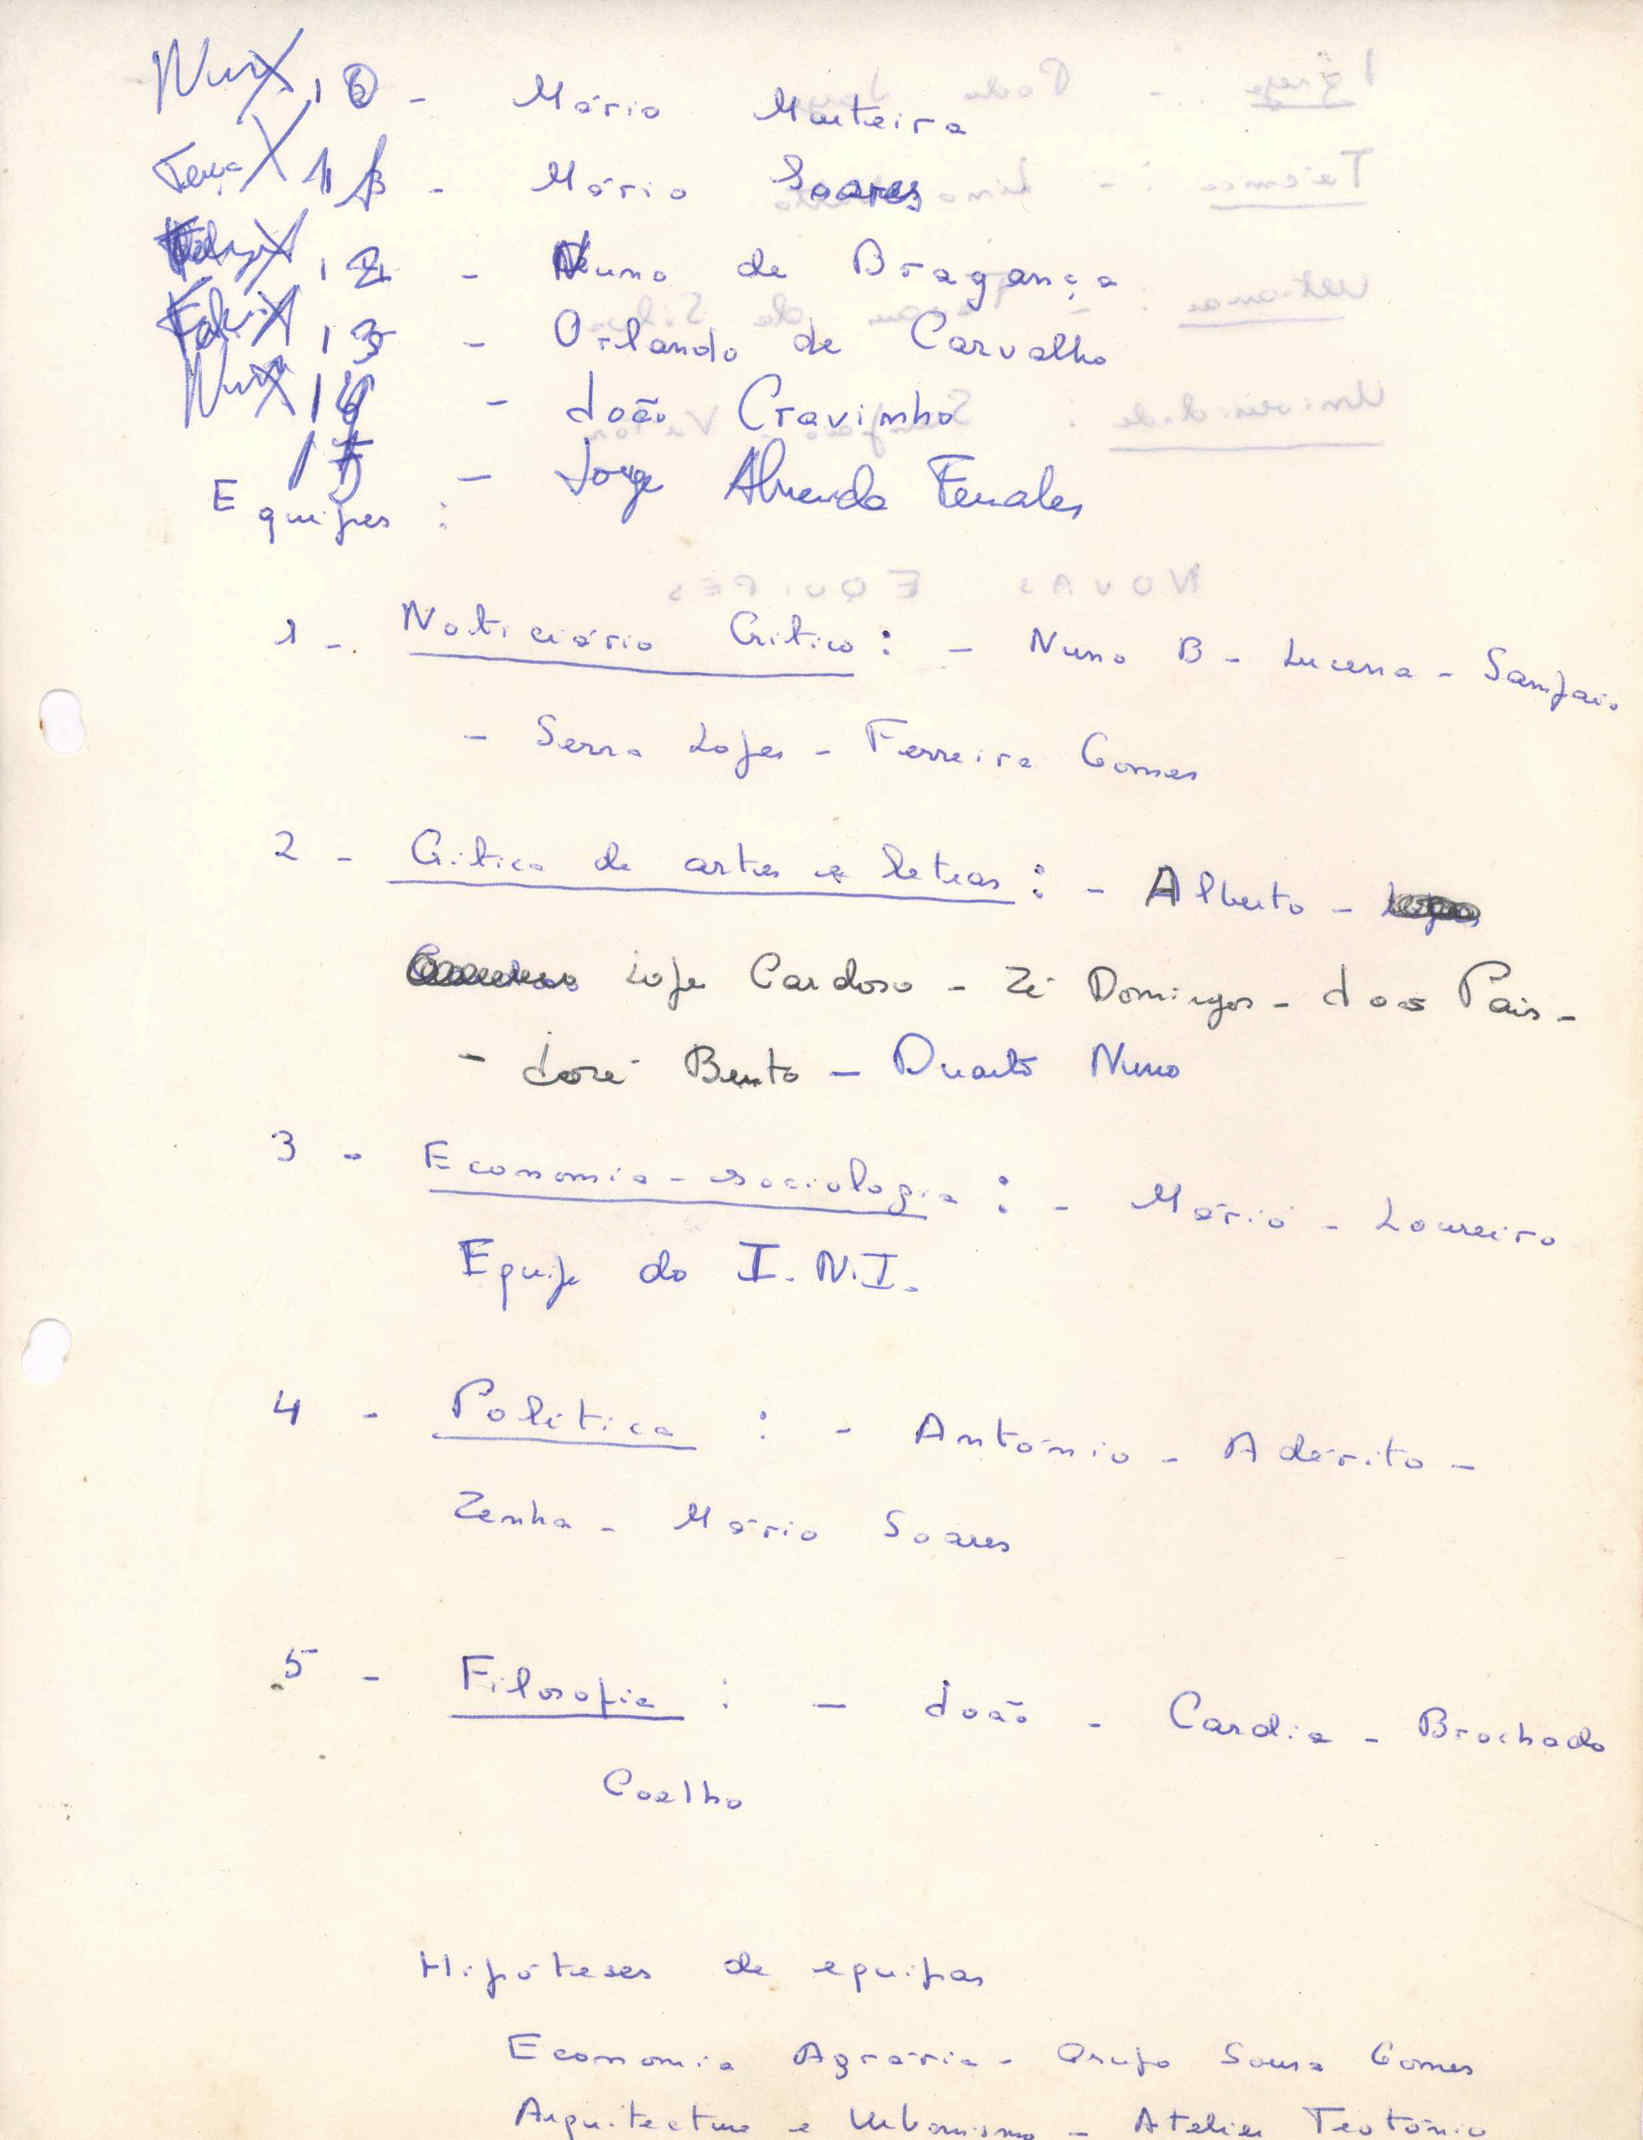 Nuno 10 - Mário Murteira
Terça 11 - Mário Soares
12 - Nuno de Bragança
13 - Orlando de Carvalho
Nuno 14 - João Cravinho
15 - Jorge Almeida Fernandes
Equipes :
1 - Noticiário Crítico : - Nuno B - Lucena - Sampaio
- Serra Lopes - Ferreira Gomes
2 - Crítica de artes e letras : - Alberto -
Lopes Cardoso - Zé Domingos - João Pais -
- José Bento - Duarte Nuno
3 - Economia - sociologia : - Mário - Loureiro
Equipe do I.N.I.
4 - Política : - António - Adérito -
Zenha - Mário Soares
5 - Filosofia : - João - Cardia - Brochado
Coelho
Hipóteses de equipas
Economia Agrária - Grupo Sousa Gomes
Arquitectura e Urbanismo - Atelier Teotónio